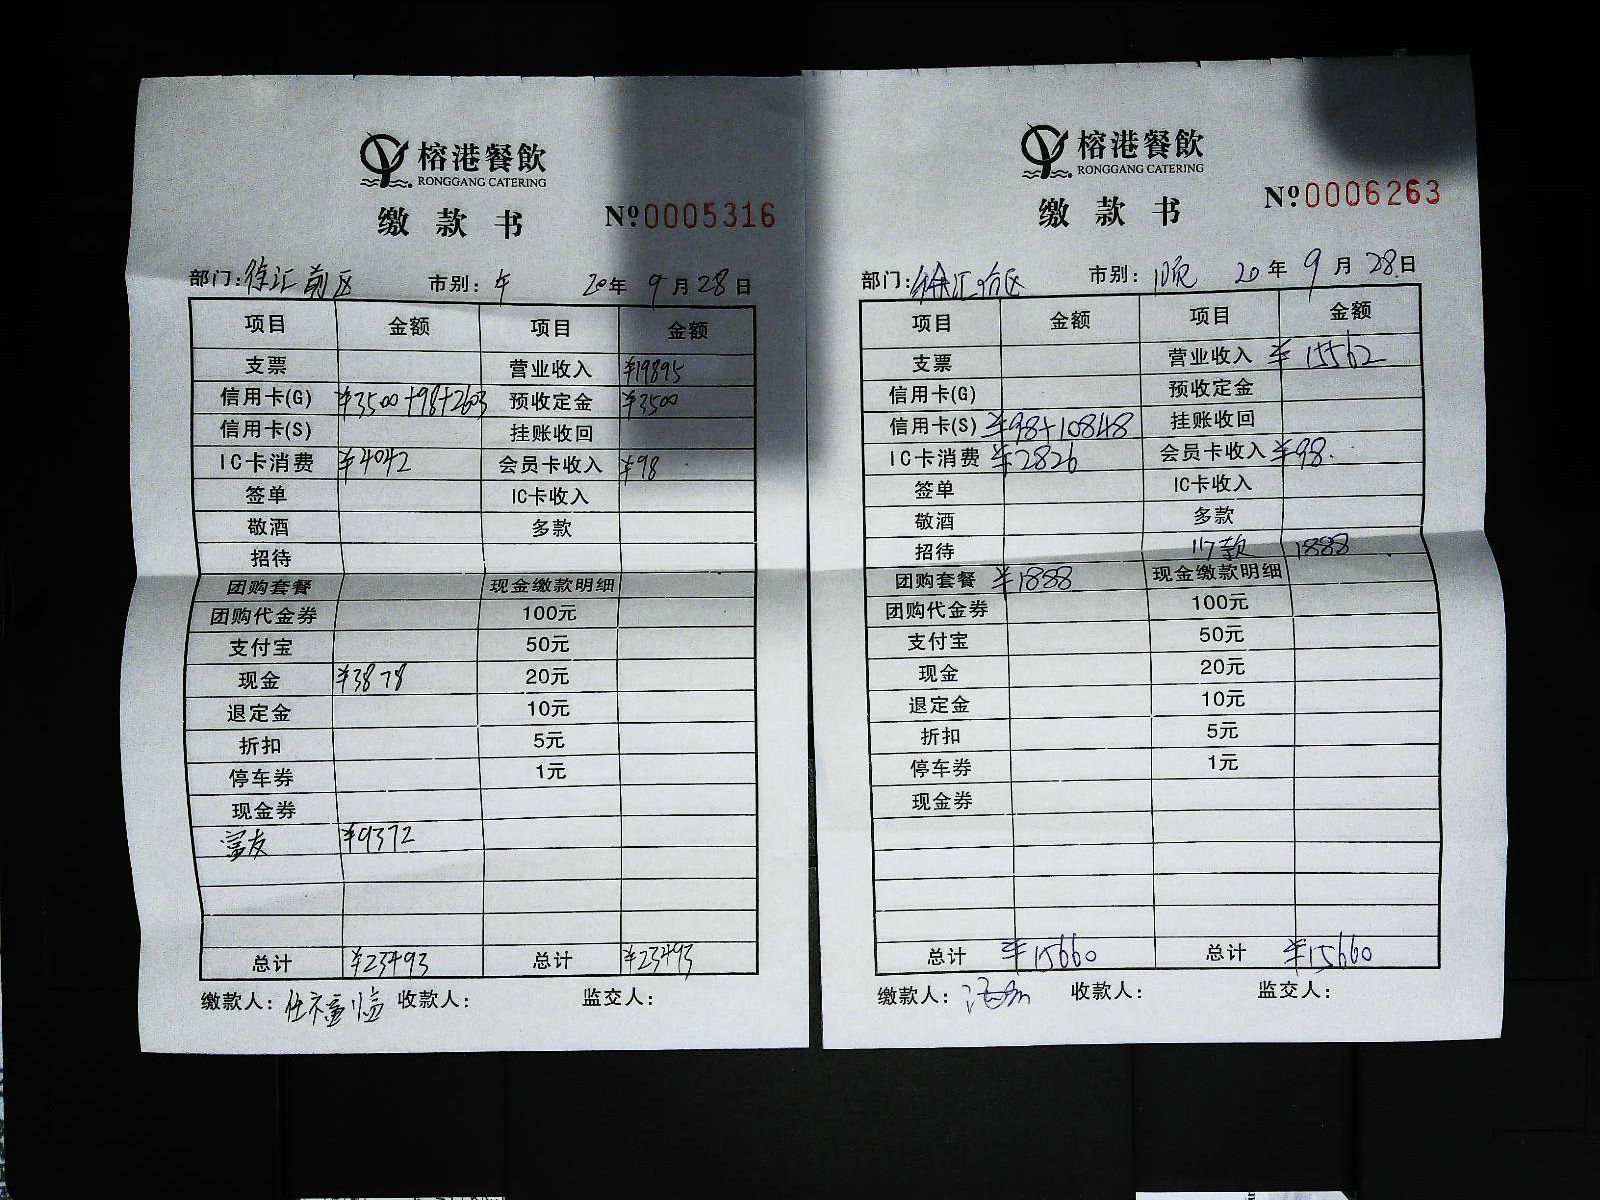 榕港餐飲
RONGGANG CATERING
缴款书 №0005316
部门:徐汇前区 市别:午 20年9月28日
项目 金额 项目 金额
支票 营业收入 ¥19895
信用卡(G) ¥3500+98+2603 预收定金 ¥3500
信用卡(S) 挂账收回
IC卡消费 ¥4042 会员卡收入 ¥98
签单 IC卡收入
敬酒 多款
招待
团购套餐 现金缴款明细
团购代金券 100元
支付宝 50元
现金 ¥3878 20元
退定金 10元
折扣 5元
停车券 1元
现金券
¥9372
总计 ¥23493 总计 ¥23493
缴款人: 收款人: 监交人:
榕港餐飲
RONGGANG CATERING
缴款书 №0006263
部门:徐汇前区 市别: 20年9月28日
项目 金额 项目 金额
支票 营业收入 ¥15562
信用卡(G) 预收定金
信用卡(S) ¥98+10848 挂账收回
IC卡消费 ¥2826 会员卡收入 ¥98.
签单 IC卡收入
敬酒 多款
招待 款 1888
团购套餐 ¥1888 现金缴款明细
团购代金券 100元
支付宝 50元
现金 20元
退定金 10元
折扣 5元
停车券 1元
现金券
总计 ¥15660 总计 ¥15660
缴款人: 收款人: 监交人: